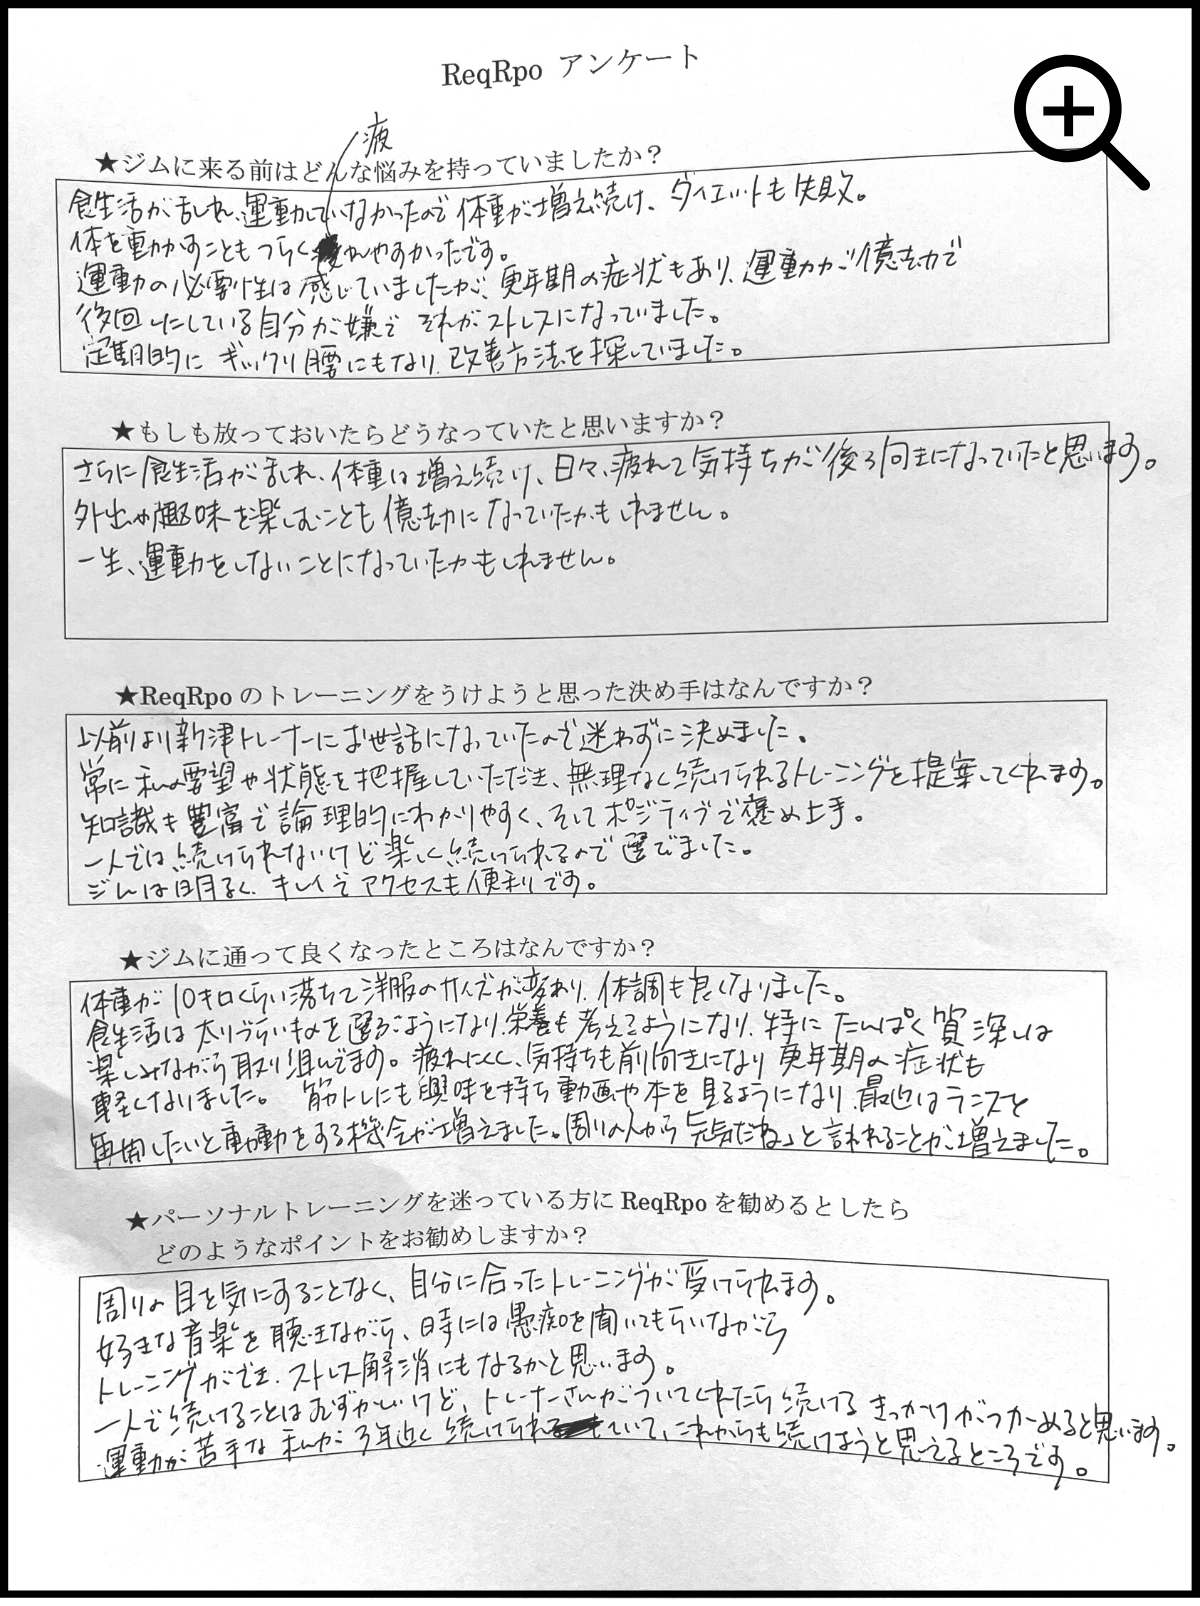 ReqRpo アンケート
★ジムに来る前はどんな悩みを持っていましたか？
疲
食生活が乱れ、運動していなかったので体重が増え続け、ダイエットも失敗。
体を動かすこともつらく れやすかったです。
運動の必要性は感じていましたが、更年期の症状もあり、運動が億劫で
後回しにしている自分が嫌で それがストレスになっていました。
定期的に ギックリ腰にもなり、改善方法を探していました。
★もしも放っておいたらどうなっていたと思いますか？
さらに食生活が乱れ、体重は増え続け、日々、疲れて気持ちが後ろ向きになっていたと思います。
外出や趣味を楽しむことも億劫になっていたかもしれません。
一生、運動をしないことになっていたかもしれません。
★ReqRpo のトレーニングをうけようと思った決め手はなんですか？
以前より新津トレーナーにお世話になっていたので迷わずに決めました。
常に私の要望や状態を把握していただき、無理なく続けられるトレーニングを提案してくれます。
知識も豊富で論理的にわかりやすく、そしてポジティブで褒め上手。
一人では続けられないけど楽しく続けられるので選びました。
ジムは明るく、キレイで アクセスも便利です。
★ジムに通って良くなったところはなんですか？
体重が10キロくらい落ちて洋服のサイズが変わり、体調も良くなりました。
食生活は太りづらいものを選ぶようになり、栄養も考えるようになり、特に たんぱく質 は
楽しみながら取り組んでます。疲れにくく、気持ちも前向きになり 更年期の症状も
軽くなりました。 筋トレにも興味を持ち動画や本を見るようになり、最近は を
再開したいと 動をする機会が増えました。周りの人から「元気だね」と言われることが増えました。
★パーソナルトレーニングを迷っている方に ReqRpo を勧めるとしたら
どのようなポイントをお勧めしますか？
周りの目を気にすることなく、自分に合ったトレーニングが受けられます。
好きな音楽を聴きながら、時には愚痴を聞いてもらいながら
トレーニングができ、ストレス解消にもなるかと思います。
一人で続けることはむずかしいけど、トレーナーさんがついてくれたら続けるきっかけがつかめると思います。
運動が苦手な私が3年近く続けられていて、これからも続けようと思えるところです。